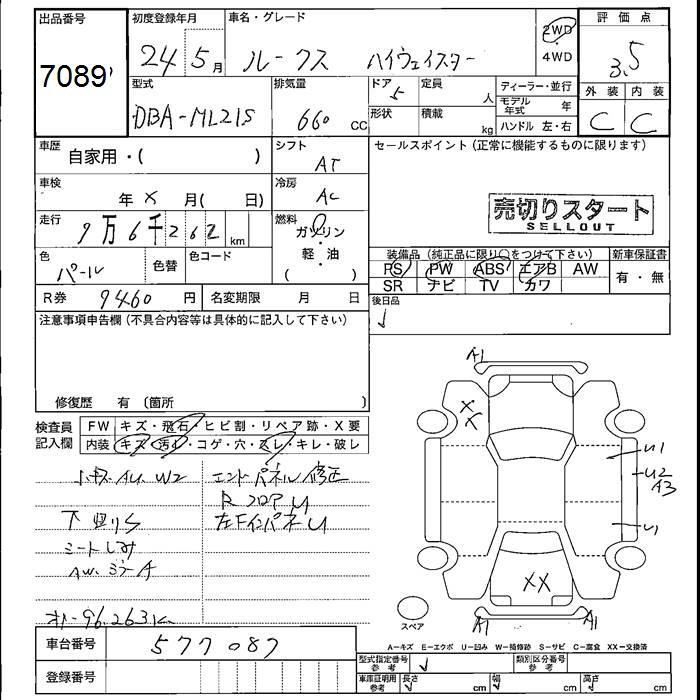 出品番号
7089
初度登録年月
24年5月
車名・グレード
ルークス ハイウェイスター
2WD
・
4WD
評価点
3.5
外装 内装
C C
型式
DBA-ML21S
排気量
660 CC
ドア 5
形状
定員 人
積載 kg
ディーラー・並行
モデル年式 年
ハンドル 左・右
車歴
自家用・( )
シフト
AT
セールスポイント(正常に機能するものに限ります)
車検
年 x 月( 日)
冷房
AC
売切りスタート
SELLOUT
走行
9万6千262 km
燃料
ガソリン
・
軽・油
( )
色
パール
色替
色コード
装備品(純正品に限り○をつけて下さい)
新車保証書
PS PW ABS エアB AW
有・無
SR ナビ TV カワ
R券 9460 円
名変期限 月 日
後日品
注意事項申告欄(不具合内容等は具体的に記入して下さい)
修復歴 有 〔箇所 〕
検査員
記入欄
FW キズ・飛石・ヒビ割・リペア跡・X要
内装 キズ・汚れ・コゲ・穴・スレ・キレ・破レ
AU. W2
エンドパネル修正
RフロアU
下廻りS
左FインパネU
シートしみ
AW. ミラーA
オドー96.263K
A1
XX
U1
U2
A3
U1
XX
A1
A1
スペア
A=キズ E=エクボ U=凹み W=補修跡 S=サビ C=腐食 XX=交換済
車台番号
577087
登録番号
型式指定番号
参考
類別区分番号
参考
車庫証明用
参考
長さ cm
幅 cm
高さ cm